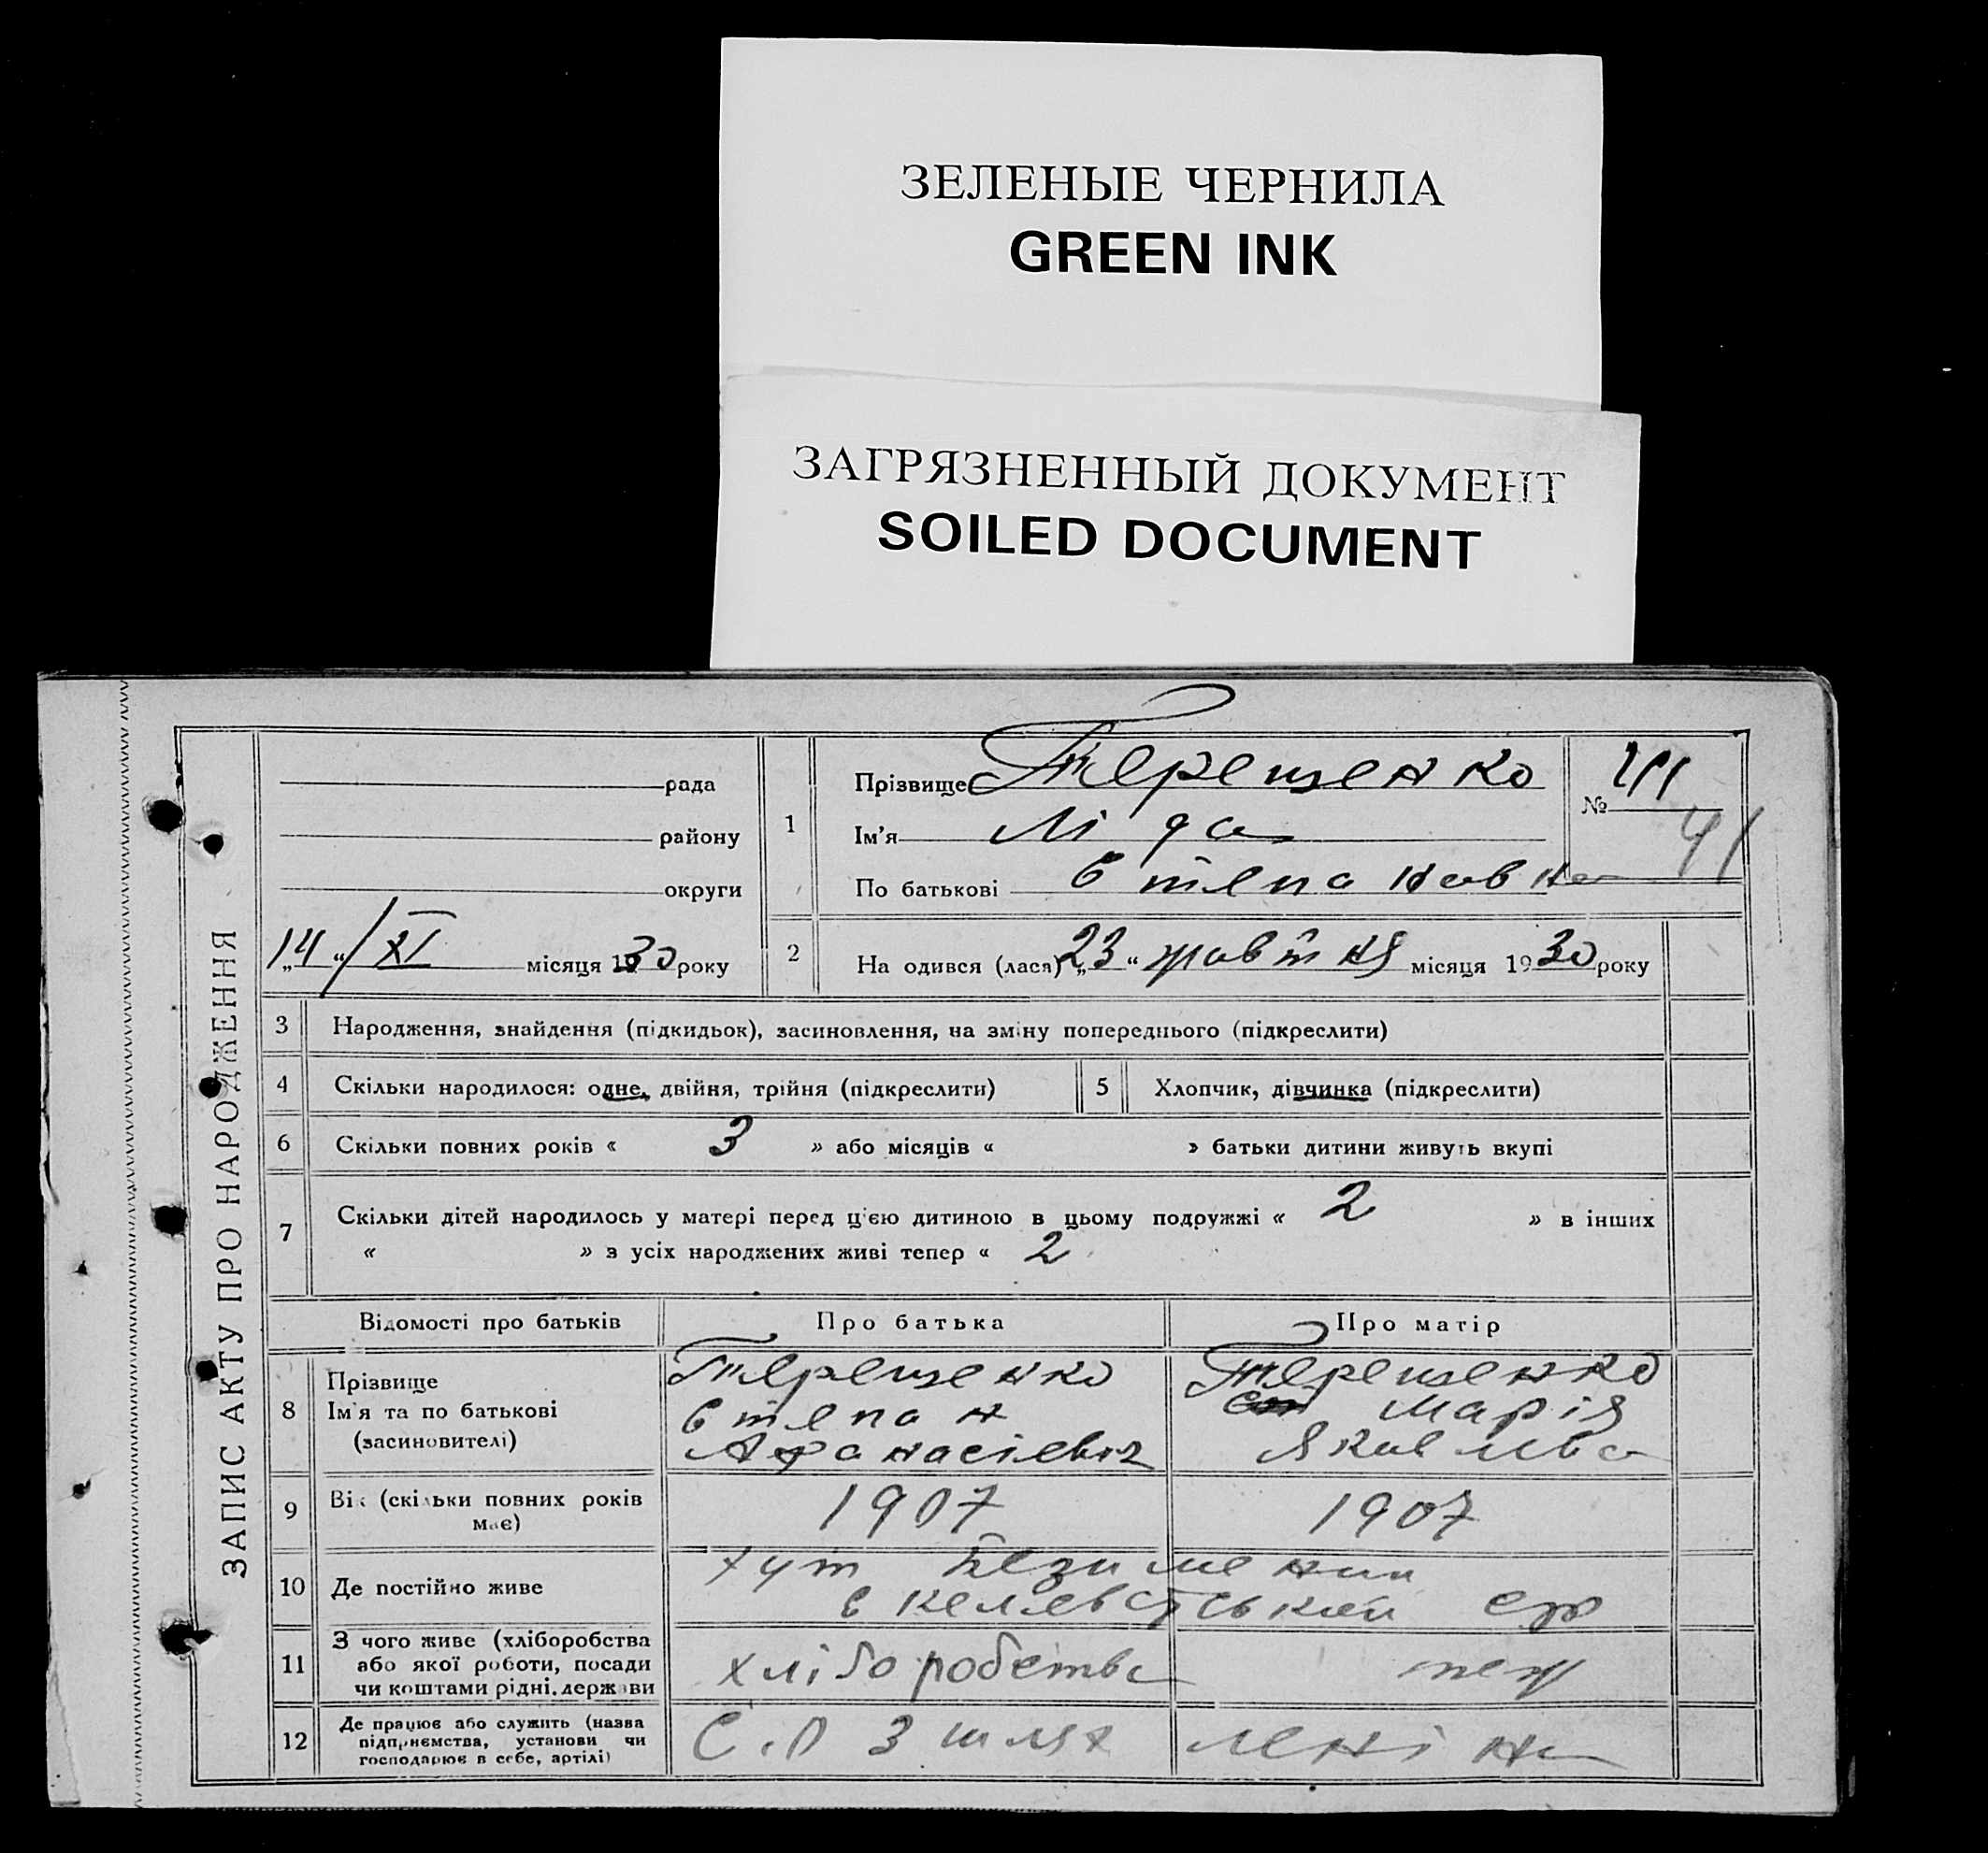 ЗЕЛЕНЫЕ ЧЕРНИЛА
GREEN INK
ЗАГРЯЗНЕННЫЙ ДОКУМЕНТ
SOILED DOCUMENT
ЗАПИС АКТУ ПРО НАРОДЖЕННЯ
рада
району
округи
„14“ / XI місяця 1930 року
1
Прізвище Терещенко
№ 41
41
Ім'я Ліда
По батькові Степановна
2
На одився (лася) „23“ жовтня місяця 1930 року
3 Народження, знайдення (підкидьок), засиновлення, на зміну попереднього (підкреслити)
4 Скільки народилося: одне, двійня, трійня (підкреслити)
5 Хлопчик, дівчинка (підкреслити)
6 Скільки повних років « 3 » або місяців « » батьки дитини живуть вкупі
7 Скільки дітей народилось у матері перед ц'єю дитиною в цьому подружжі « 2 » в інших
« » з усіх народжених живі тепер « 2
Відомості про батьків Про батька Про матір
8 Прізвище
Ім'я та по батькові
(засиновителі)
Терещенко
Степан
Афанасієвич
Терещенко
Марія
Яковлівна
9 Вік (скільки повних років має) 1907 1907
10 Де постійно живе
хут
11 З чого живе (хліборобства
або якої роботи, посади
чи коштами рідні, держави
хліборобство теж
12 Де працює або служить (назва
підприємства, установи чи
господарює в себе, артілі)
С.П З шлях Леніна